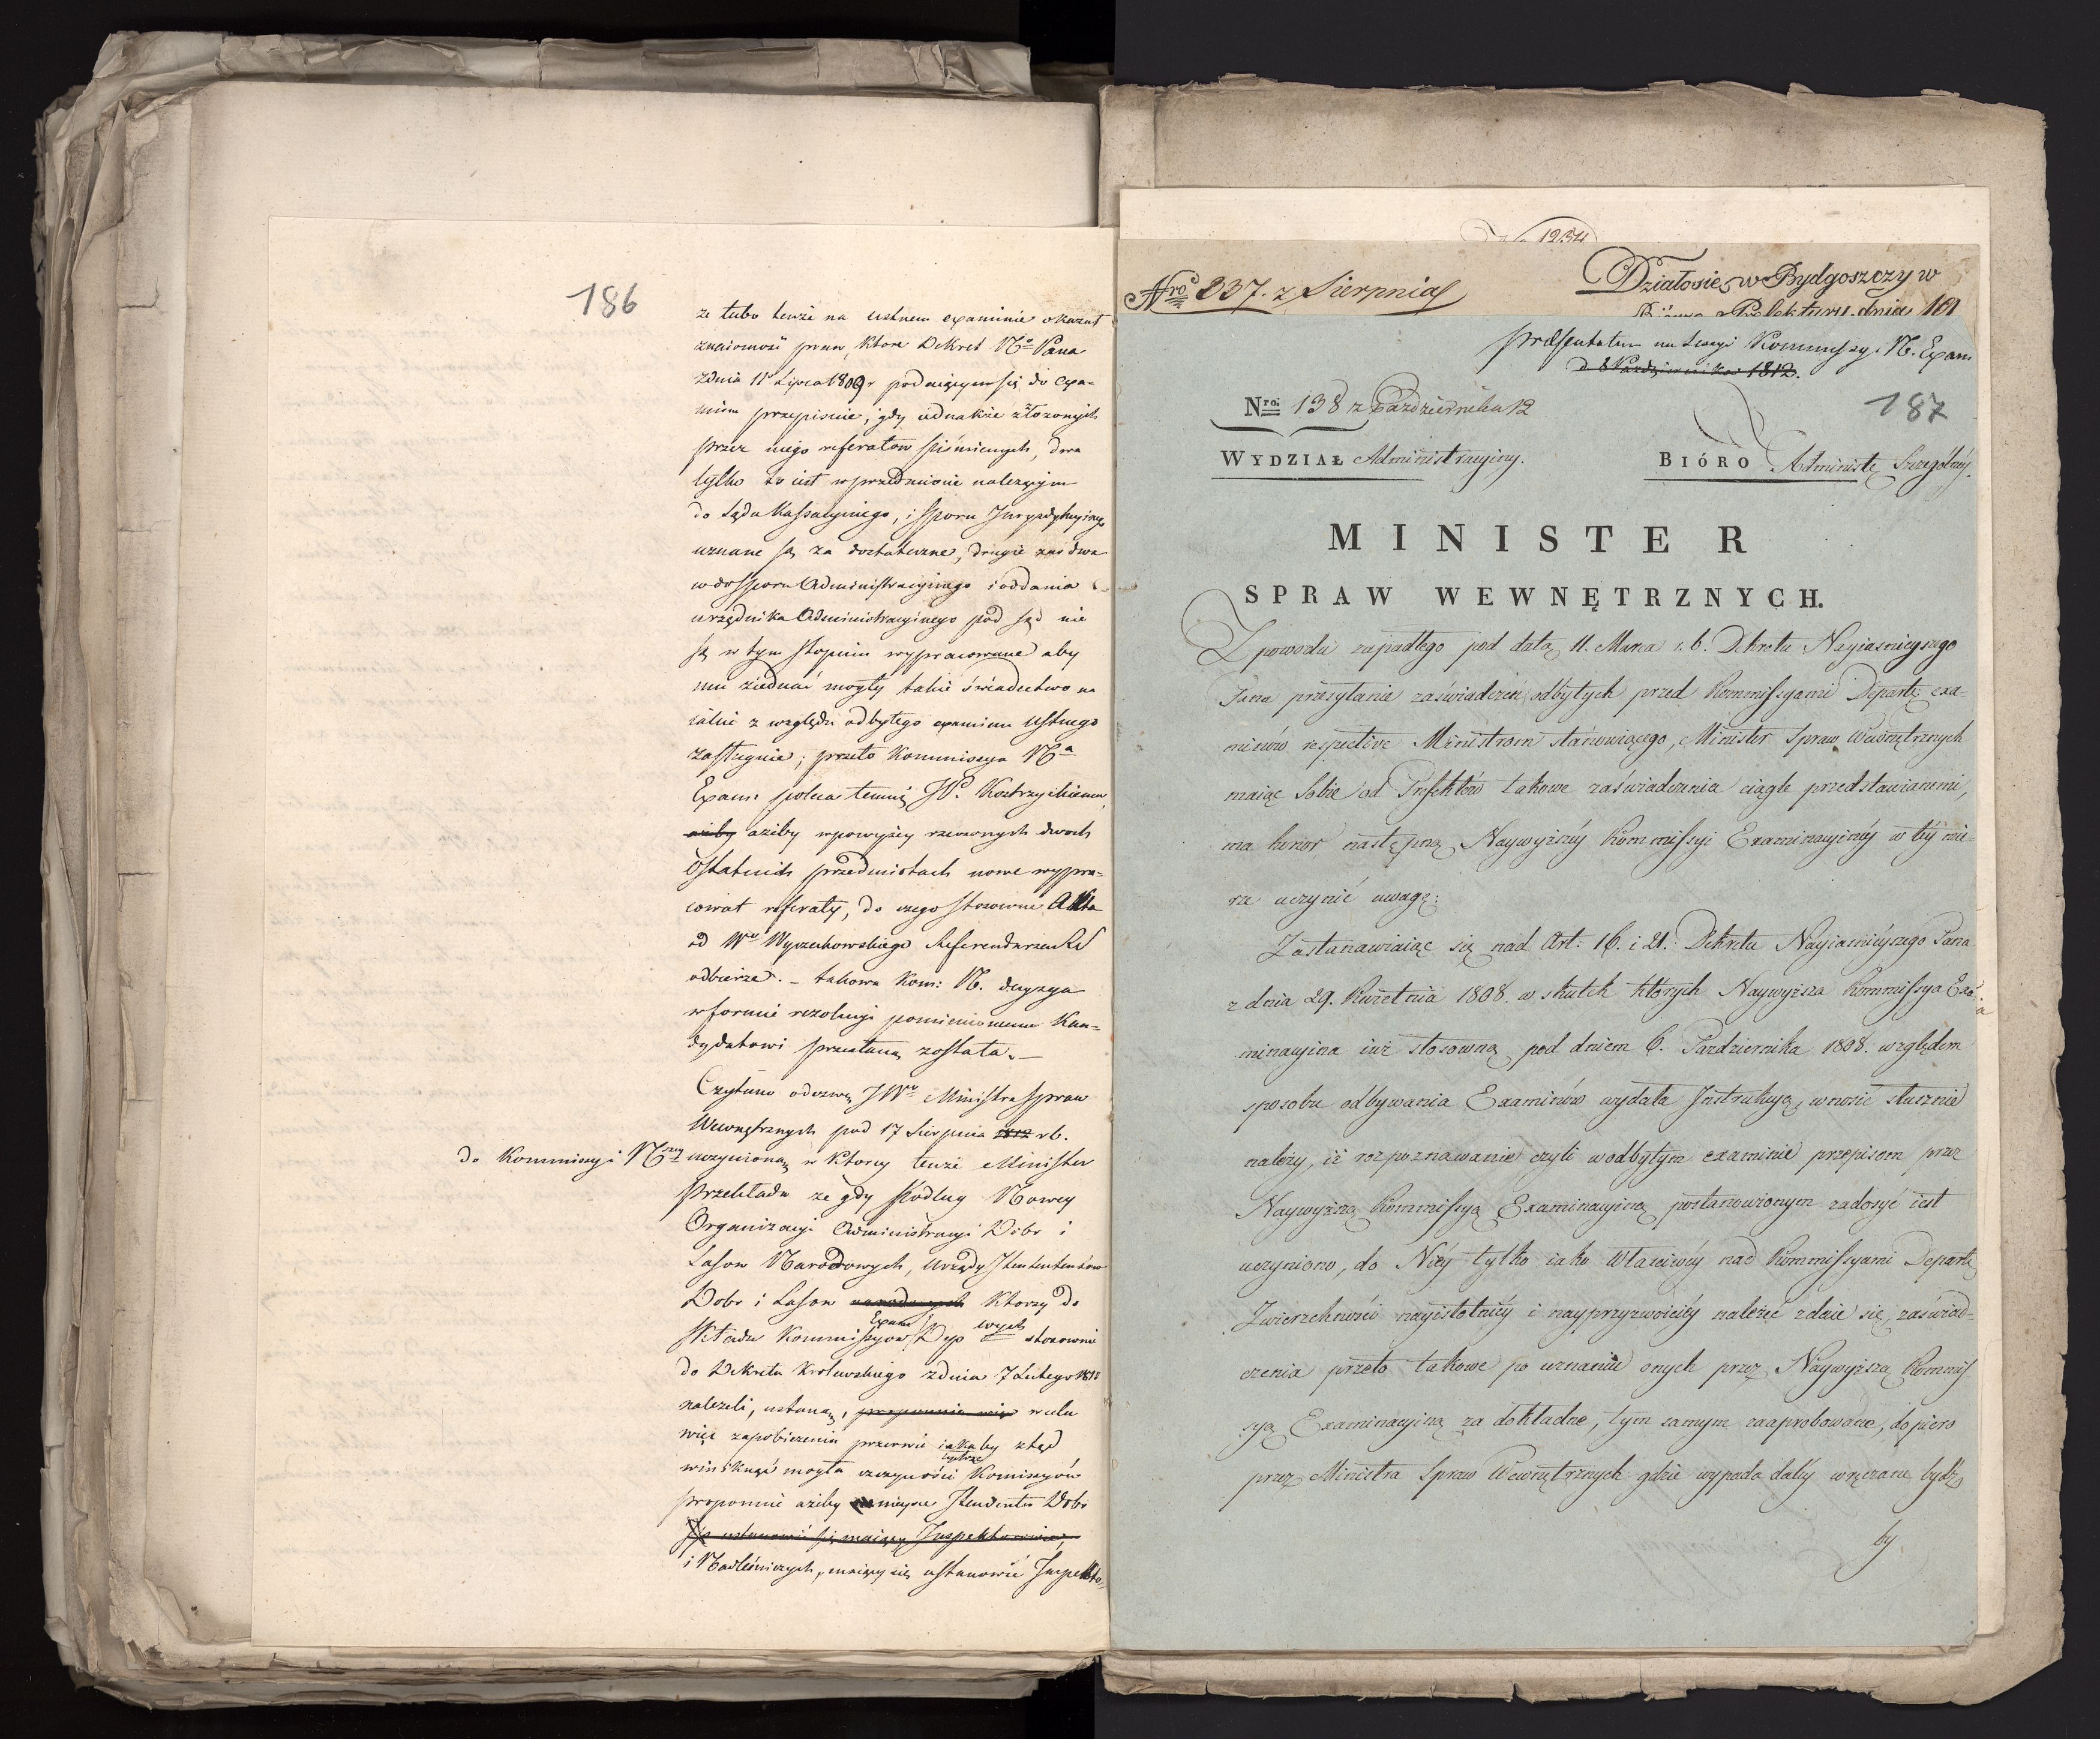 186
że lubo tenże na ustnem examinie okazał
znaiomość praw, ktore Dekret Nº Pana
z dnia 11º Lipca 1809 r podaiącym się do exa-
minu przepisuie, gdy iednakże złożonych
przez niego referatow piśmiennych, dwa
tylko to iest w przedmiocie należącym
do Sądu Kassacyinego, i sporu Juryzdykcyinego
uznane są za dostateczne, drugie zaś dwa
w do sporu Administracyinego i oddania
urzędnika Administracyinego pod sąd nie
są w tym stopniu wypracowane aby
mu ziednać mogły takie świadectwo na
iakie z względu odbytego examinu ustnego
zasługuie; przeto Kommissya Nª
Exam: poleca temuż JP. Kostrzyckiemu,
ażeby ażeby w powyżey rzeczonych dwoch
ostatnich przedmiotach nowe wypra-
cował referaty, do czego stosowne Akta
od Wº Wyczechowskiego Referendarza RS
odbierze. – takowa Kom: N. decyzya
w formie rezolucyi pomienionemu Kan-
dydatowi przesłaną została. –
Czytano odezwę JWº Ministra Spraw
Wewnętrznych pod 17 Sierpnia 1812 r b.
do Kommissyi Nszey uczynioną w ktorey tenże Minister
przekłada że gdy podług Nowey
Organizacyi Administracyi Dobr i
Lasow Narodowych, Urzędy Intendentow
Dobr i Lasow narodowych ktorzy do
składu Kommissyow Exam: Dep wych stosownie
do Dekretu Krolewskiego z dnia 7 Lutego 1811
należeli, ustaną, proponuie więc w celu
więc zapobieżenia przerwie iakaby ztąd
wyniknąć mogła w czynności Kommissyów
proponuie ażeby na mieysce Intendentow Dobr
ustanowić się maiący Inspektorowie,
i Nadleśniczych, maiący się ustanowić Inspekto-
1234
Nro 237. z Sierpnia
Działo się w Bydgoszczy w
Biórze Prefektury dnia 10
Præsentatum na Sessyi Kommissyi N. Exam
d. 8 Pazdziernika 1812.
Nroi 138 z Października 12
187
WYDZIAŁ Administracyiny.
BIÓRO Administr. Szczególnéy.
MINISTER
SPRAW WEWNĘTRZNYCH.
Z powodu zapadłego pod datą 11. Marca r. b. Dekretu Nayiaśnieyszego
Pana przesyłanie zaświadczeń odbytych przed Kommissyami Departt. exa-
minów respective Ministrom stanowiącego, Minister Spraw Wewnętrznych
maiąc sobie od Prefektów takowe zaświadczenia ciągle przedstawianemi,
ma honor następną Naywyższéy Kommissyi Examinacyinéy w téy mie-
rze uczynić uwagę:
Zastanawiaiąc się nad Art: 16. i 21. Dekretu Nayiaśnieyszego Pana
z dnia 29. Kwietnia 1808. w skutek których Naywyższa Kommissya Exa-
minacyina iuż stosowną, pod dniem 6. Pazdziernika 1808. względem
sposobu odbywania Examinów wydała Instrukcyą, wnosić słusznie
należy, iż rozpoznawanie czyli w odbytym examinie przepisom przez
Naywyższą Kommissyą Examinacyiną postanowionym zadosyć iest
uczyniono, do Niéy tylko iako właściwéy nad Kommissyami Departt.
Zwierzchności nayistotniéy i nayprzyzwoiciéy należeć zdaie się, zaświad-
czenia przeto takowe po uznaniu onych przez Naywyższą Kommis-
syą Examinacyiną za dokładne, tym samym zaaprobowane, dopiero
przez Ministra Spraw Wewnętrznych gdzie wypada daléy wręczane bydź
by